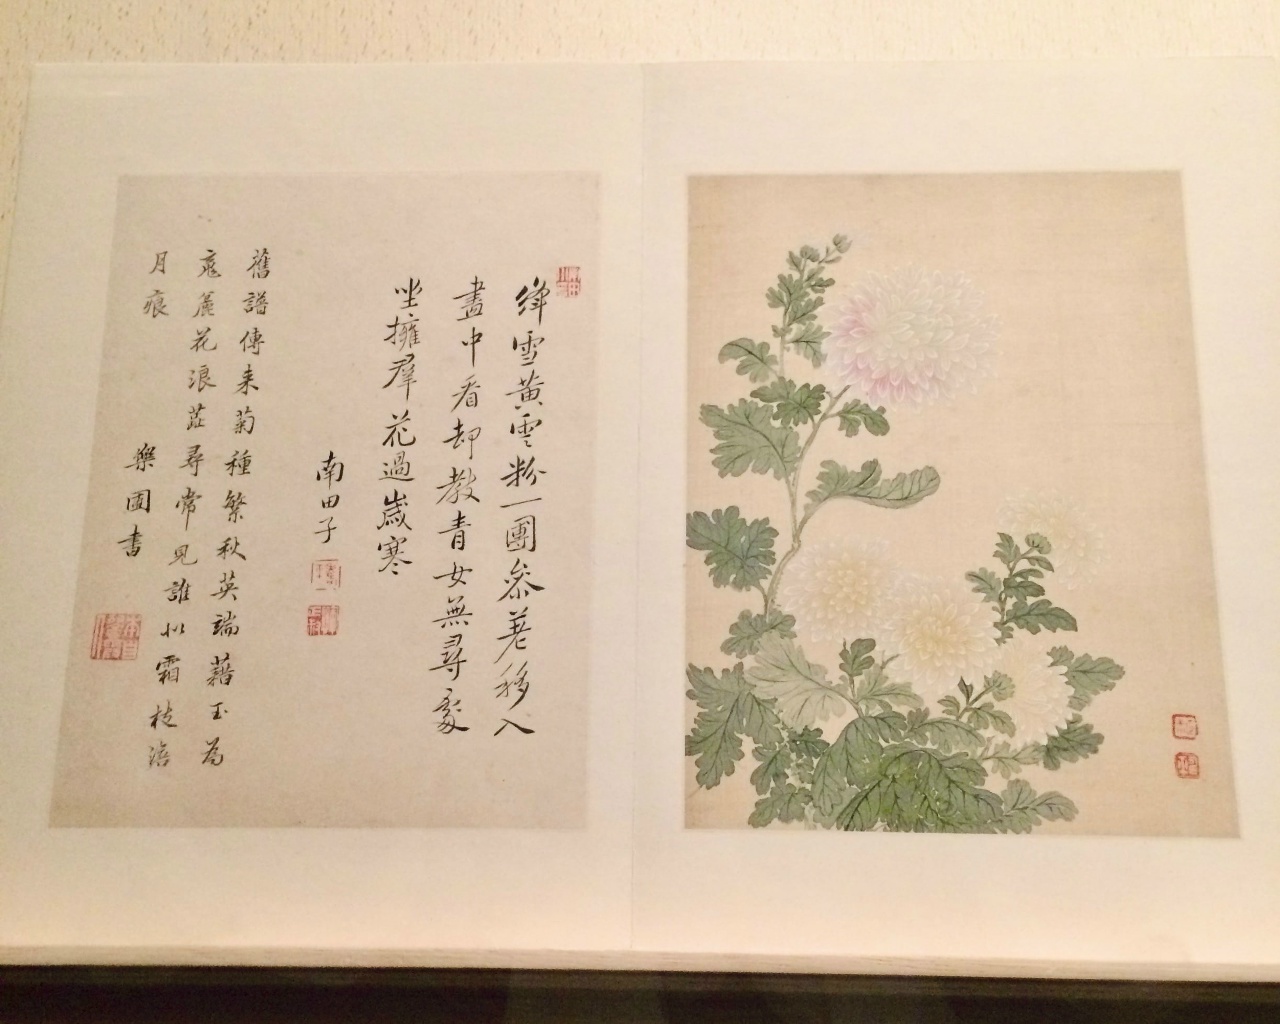 絳雪黃雲粉一團參差移入
畫中看却教青女無尋處
坐擁羣花過歲寒
南田子
舊譜傳来菊種繁秋英端藉玉為
花浪蕊尋常見誰似霜枝澹
月痕
樂圃書